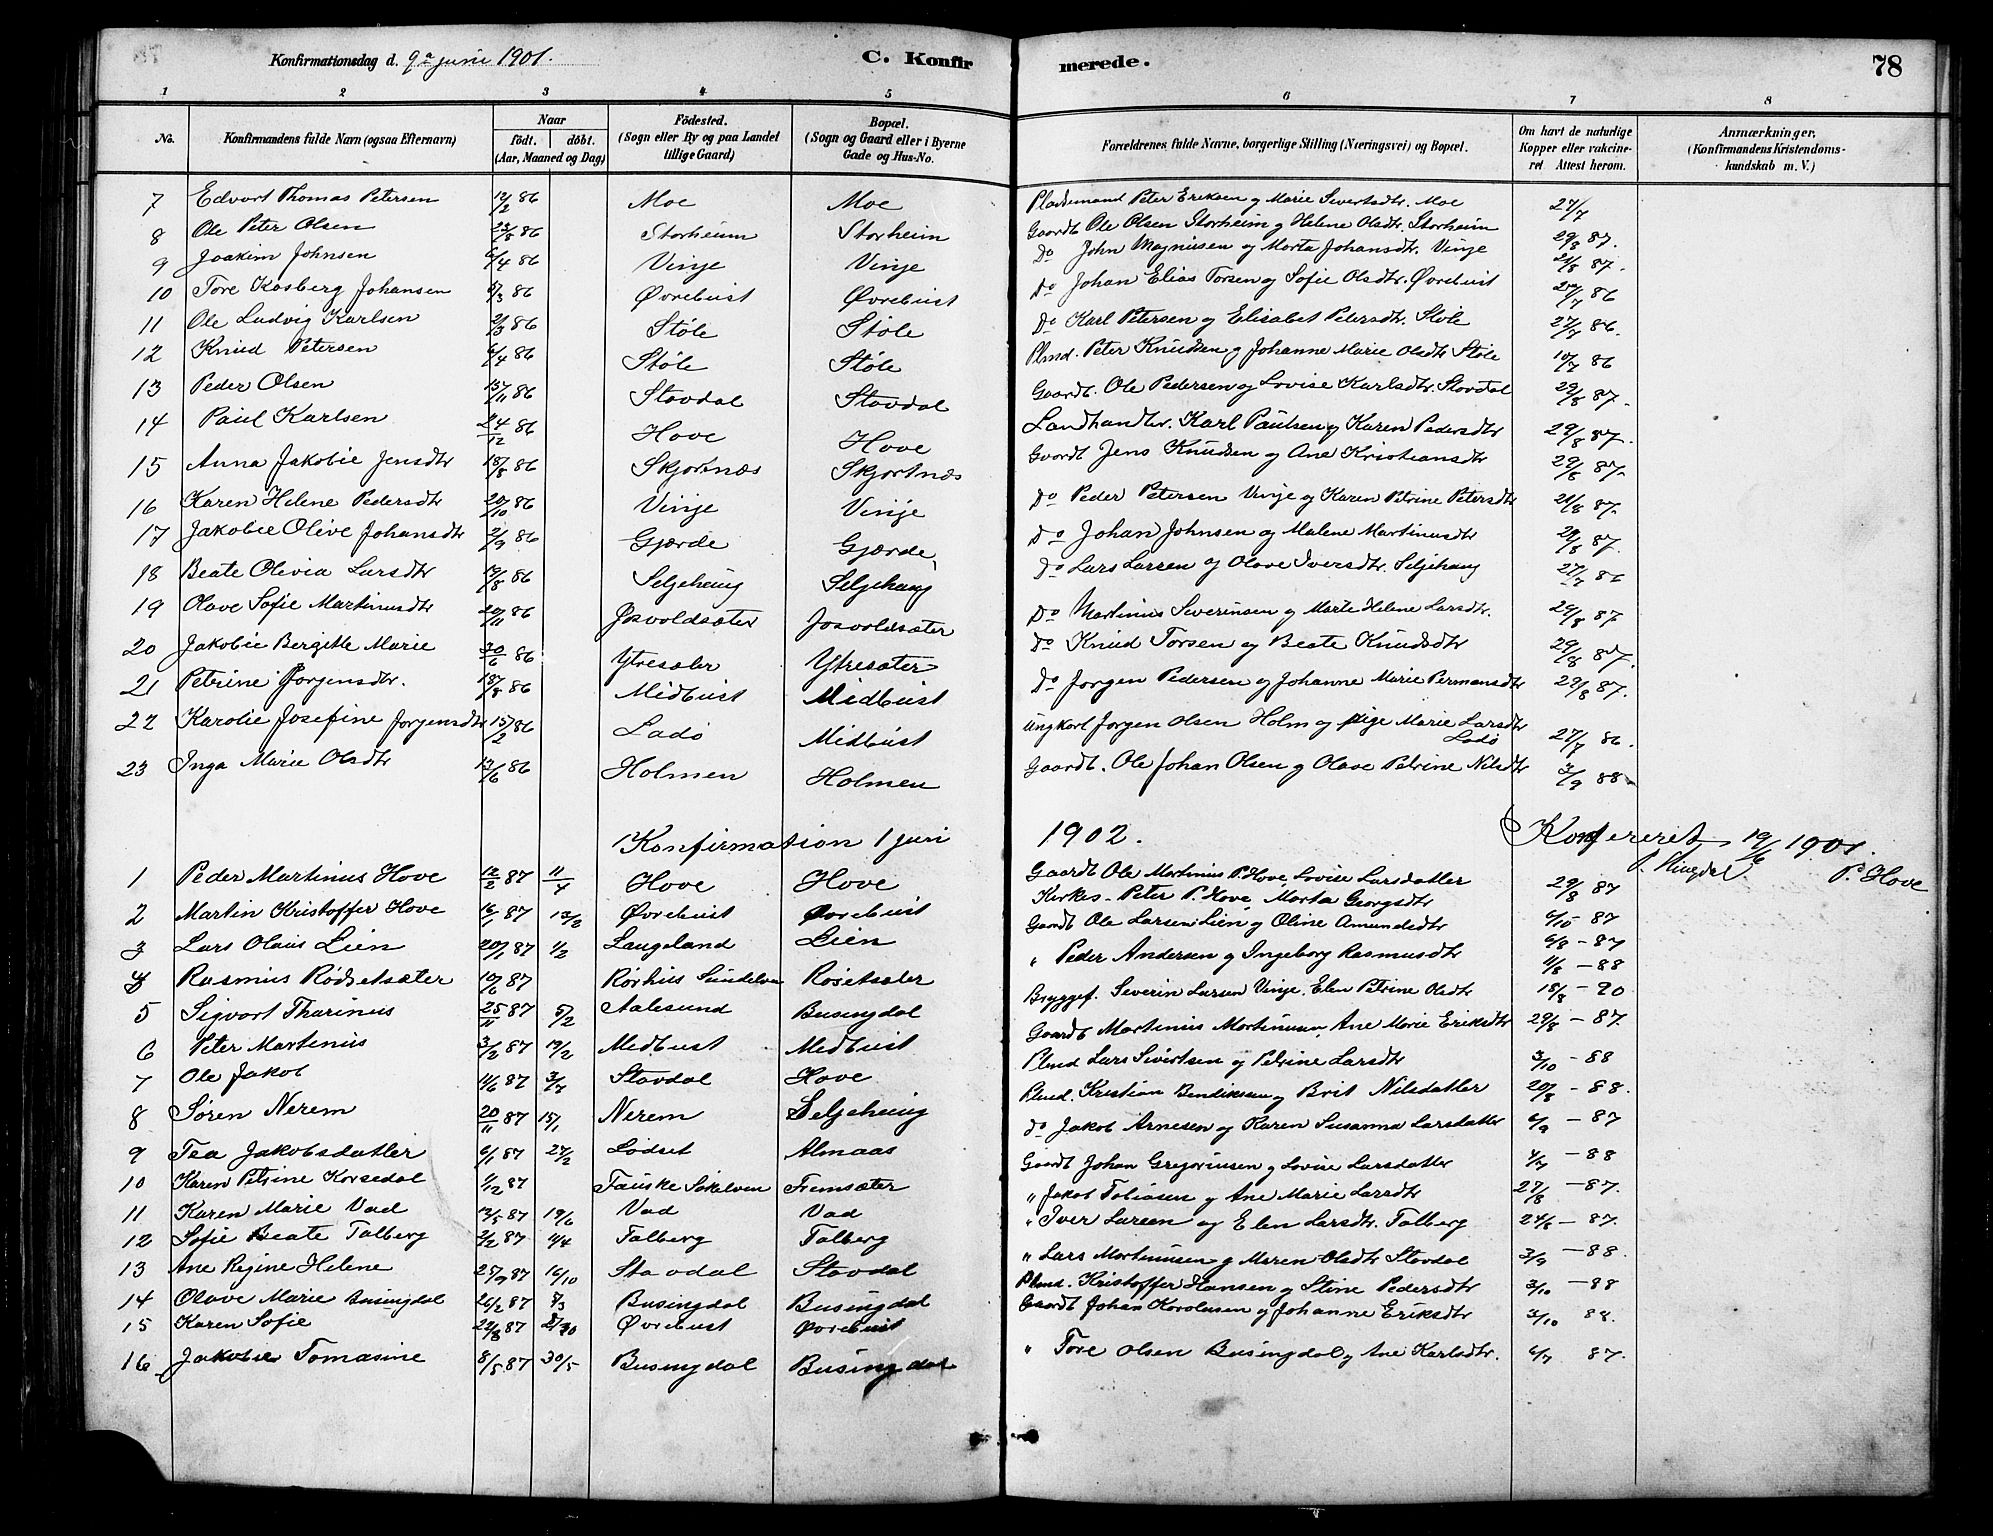 Konfirmationsdag d. 9de juni 1901.
C. Konfirmerede.
78
1 2 3 4 5 6 7 8
No. Konfirmandens fulde Navn (ogsaa Efternavn) Naar født. døbt. (Aar, Maaned og Dag) Fødested. (Sogn eller By og paa Landet tillige Gaard) Bopæl. (Sogn og Gaard eller i Byerne Gade og Hus-No. Forældrenes fulde Navne, borgerlige Stilling (Næringsvei) og Bopæl. Om havt de naturlige Kopper eller vakcineret Attest herom. Anmærkninger, (Konfirmandens Kristendomskundskab m. V.)
7 Edvart Thomas Petersen 12/2 86 Moe Moe Pladsemand Peter Eriksen og Marie Sivertsdtr. Moe 27/7
8 Ole Peter Olsen 23/8 86 Storheim Storheim Gaardb. Ole Olsen Storheim og Helene Olsdtr. Storheim 29/8 87.
9 Joakim Johnsen 6/4 86 Vinje Vinje Do John Magnusen og Marta Johansdtr. Vinje 21/8 87.
10 Tore Kasberg Johansen 5/3 86 Øvrebust Øvrebust Do Johan Elias Torsen og Sofie Olsdtr. Øvrebust 86
11 Ole Ludvig Karlsen 2/3 86 Støle Støle Do Karl Petersen og Elisabet Petersdtr. Støle 27/7 86.
12 Knud Petersen 6/4 86 Støle Støle Plmd. Peter Knudsen og Johanne Marie Olsdtr Støle 10/7 86
13 Peder Olsen 13/11 86 Stavdal Stavdal Gaardb. Ole Pedersen og Lovise Karlsdtr Stavdal 29/8 87.
14 Paul Karlsen 24/12 86 Hove Hove Landhandler. Karl Paulsen og Karen Pedersdtr 29/8 87.
15 Anna Jakobie Jensdtr 18/8 86 Skjortnæs Skjortnæs Gaardb Jens Knudsen og Ane Kristiansdtr 29/8 87.
16 Karen Helene Pedersdtr 20/10 86 Vinje Vinje Do Peder Petersen Vinje og Karen Petrine Petersdtr 21/8 87.
17 Jakobie Olive Johansdtr 2/9 86 Gjærde Gjærde Do Johan Johnsen og Malene Martinusdtr 29/8 87.
18 Beate Olivia Larsdtr 13/8 86 Seljehaug Seljehaug Do Lars Larsen og Olave Iversdtr. Seljehaug 27/7 86
19 Olave Sofie Martinusdtr 20/11 86 Josvoldsæter Josvoldsæter Do Martinus Severinsen og Marte Helene Larsdtr. 29/8 87
20 Jakobie Bergitte Marie 30/6 86 Ytresæter Ytresæter Do Knud Torsen og Beate Knudsdtr 29/8 87.
21 Petrine Jorgensdtr. 18/8 86 Midbust Midbust Do Jorgen Pedersen og Johanne Marie Permansdtr 29/8 87.
22 Karolie Josefine Jorgensdtr 15/2 86 Ladø Midbust Ungkarl Jorgen Olsen Holm og Pige Marie Larsdtr Ladø 27/7 86.
23 Inga Marie Olsdtr 13/6 86 Holmen Holmen Gaardb. Ole Johan Olsen og Olave Petrine Nilsdtr 3/9 88
Konfirmation 1 juni 1902. Konfereret 19/6 1901.
P. Hove
1 Peder Martinus Hove 12/2 87 11/4 Hove Hove Gaardb Ole Martinus P. Hove, Lovise Larsdatter 29/8 87
2 Martin Kristoffer Hove 16/1 87 13/2 Øvrebust Øvrebust Kirkes. Peter P. Hove, Marta Georgsdtr 6/10 - 87
3 Lars Olaus Lien 20/1 87 1/2 Langeland Lien Gaardb Ole Larsen Lien og Oline Amundsdtr 6/8 - 87
4 Rasmus Rødsetsæter 10/6 87 Rørhus Rosetsæter " Peder Andersen og Ingeborg Rasmusdtr 11/8 - 88
5 Sigvart Tharinus 25/11 87 5/2 Aalesund Busingdal Bryggef. Severin Larsen Vinje. Elen Petrine Olsdtr 18/8 - 90
6 Peter Martinus 3/2 87 19/2 Medbust Medbust Gaardb Martinus Martinusen, Ane Marie Eriksdtr 29/8 - 87.
7 Ole Jakob 11/6 87 3/7 Stavdal Hove Plmd Lars Sivertsen og Petrine Larsdtr 3/10 - 88
8 Søren Nerem 20/11 87 15/1 Nerem Seljehaug Plmd. Kristian Bendiksen og Brit Nilsdatter 20/8 - 88.
9 Tea Jakobsdatter 6/1 87 27/2 Lødset Almaas do Jakob Arnesen og Karen Susanna Larsdatter 6/9 - 87
10 Karen Petrine Korsedal 1/12 87 Fauske Søkelven Fremsæter Gaardb Johan Gregoriusen og Lovise Larsdatter 4/7 - 88
11 Karen Marie Vad 13/5 87 19/6 Vad Vad " Jakob Tobiasen og Ane Marie Larsdtr 27/8 - 87.
12 Sofie Beate Talberg 2/2 87 11/4 Talberg Talberg " Iver Larsen og Elen Larsdtr. Talberg 24/8 - 87.
13 Ane Regine Helene 25/9 87 16/10 Stavdal Stavdal " Lars Martinusen og Maren Olsdtr Stavdal 3/9 - 88.
14 Olave Marie Busingdal 26/2 87 8/3 Busingdal Busingdal Plmd. Kristoffer Hansen og Stine Pedersdtr 3/10 - 88
15 Karen Sofie 22/8 87 Øvrebust Øvrebust Gaardb Johan Karolusen og Johanne Eriksdtr 3/10 88.
16 Jakobie Tomasine 8/5 87 30/5 Busingdal Busingdal " Tore Olsen Busingdal og Ane Karlsdtr. 6/7 87.